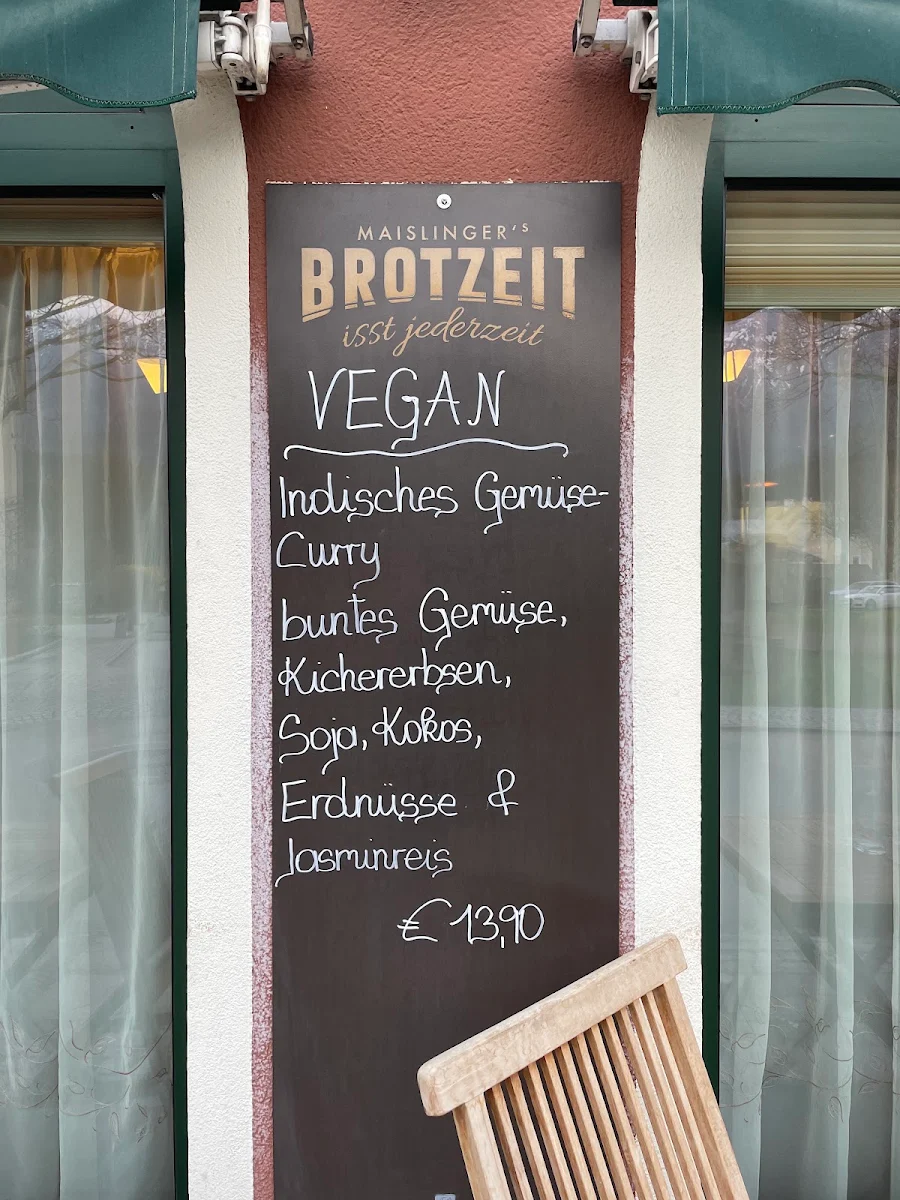 MAISLINGER'S
BROTZEIT
isst jederzeit
VEGAN
Indisches Gemüse-
Curry
buntes Gemüse,
Kichererbsen,
Soja, Kokos,
Erdnüsse &
Jasminreis
€ 13,90